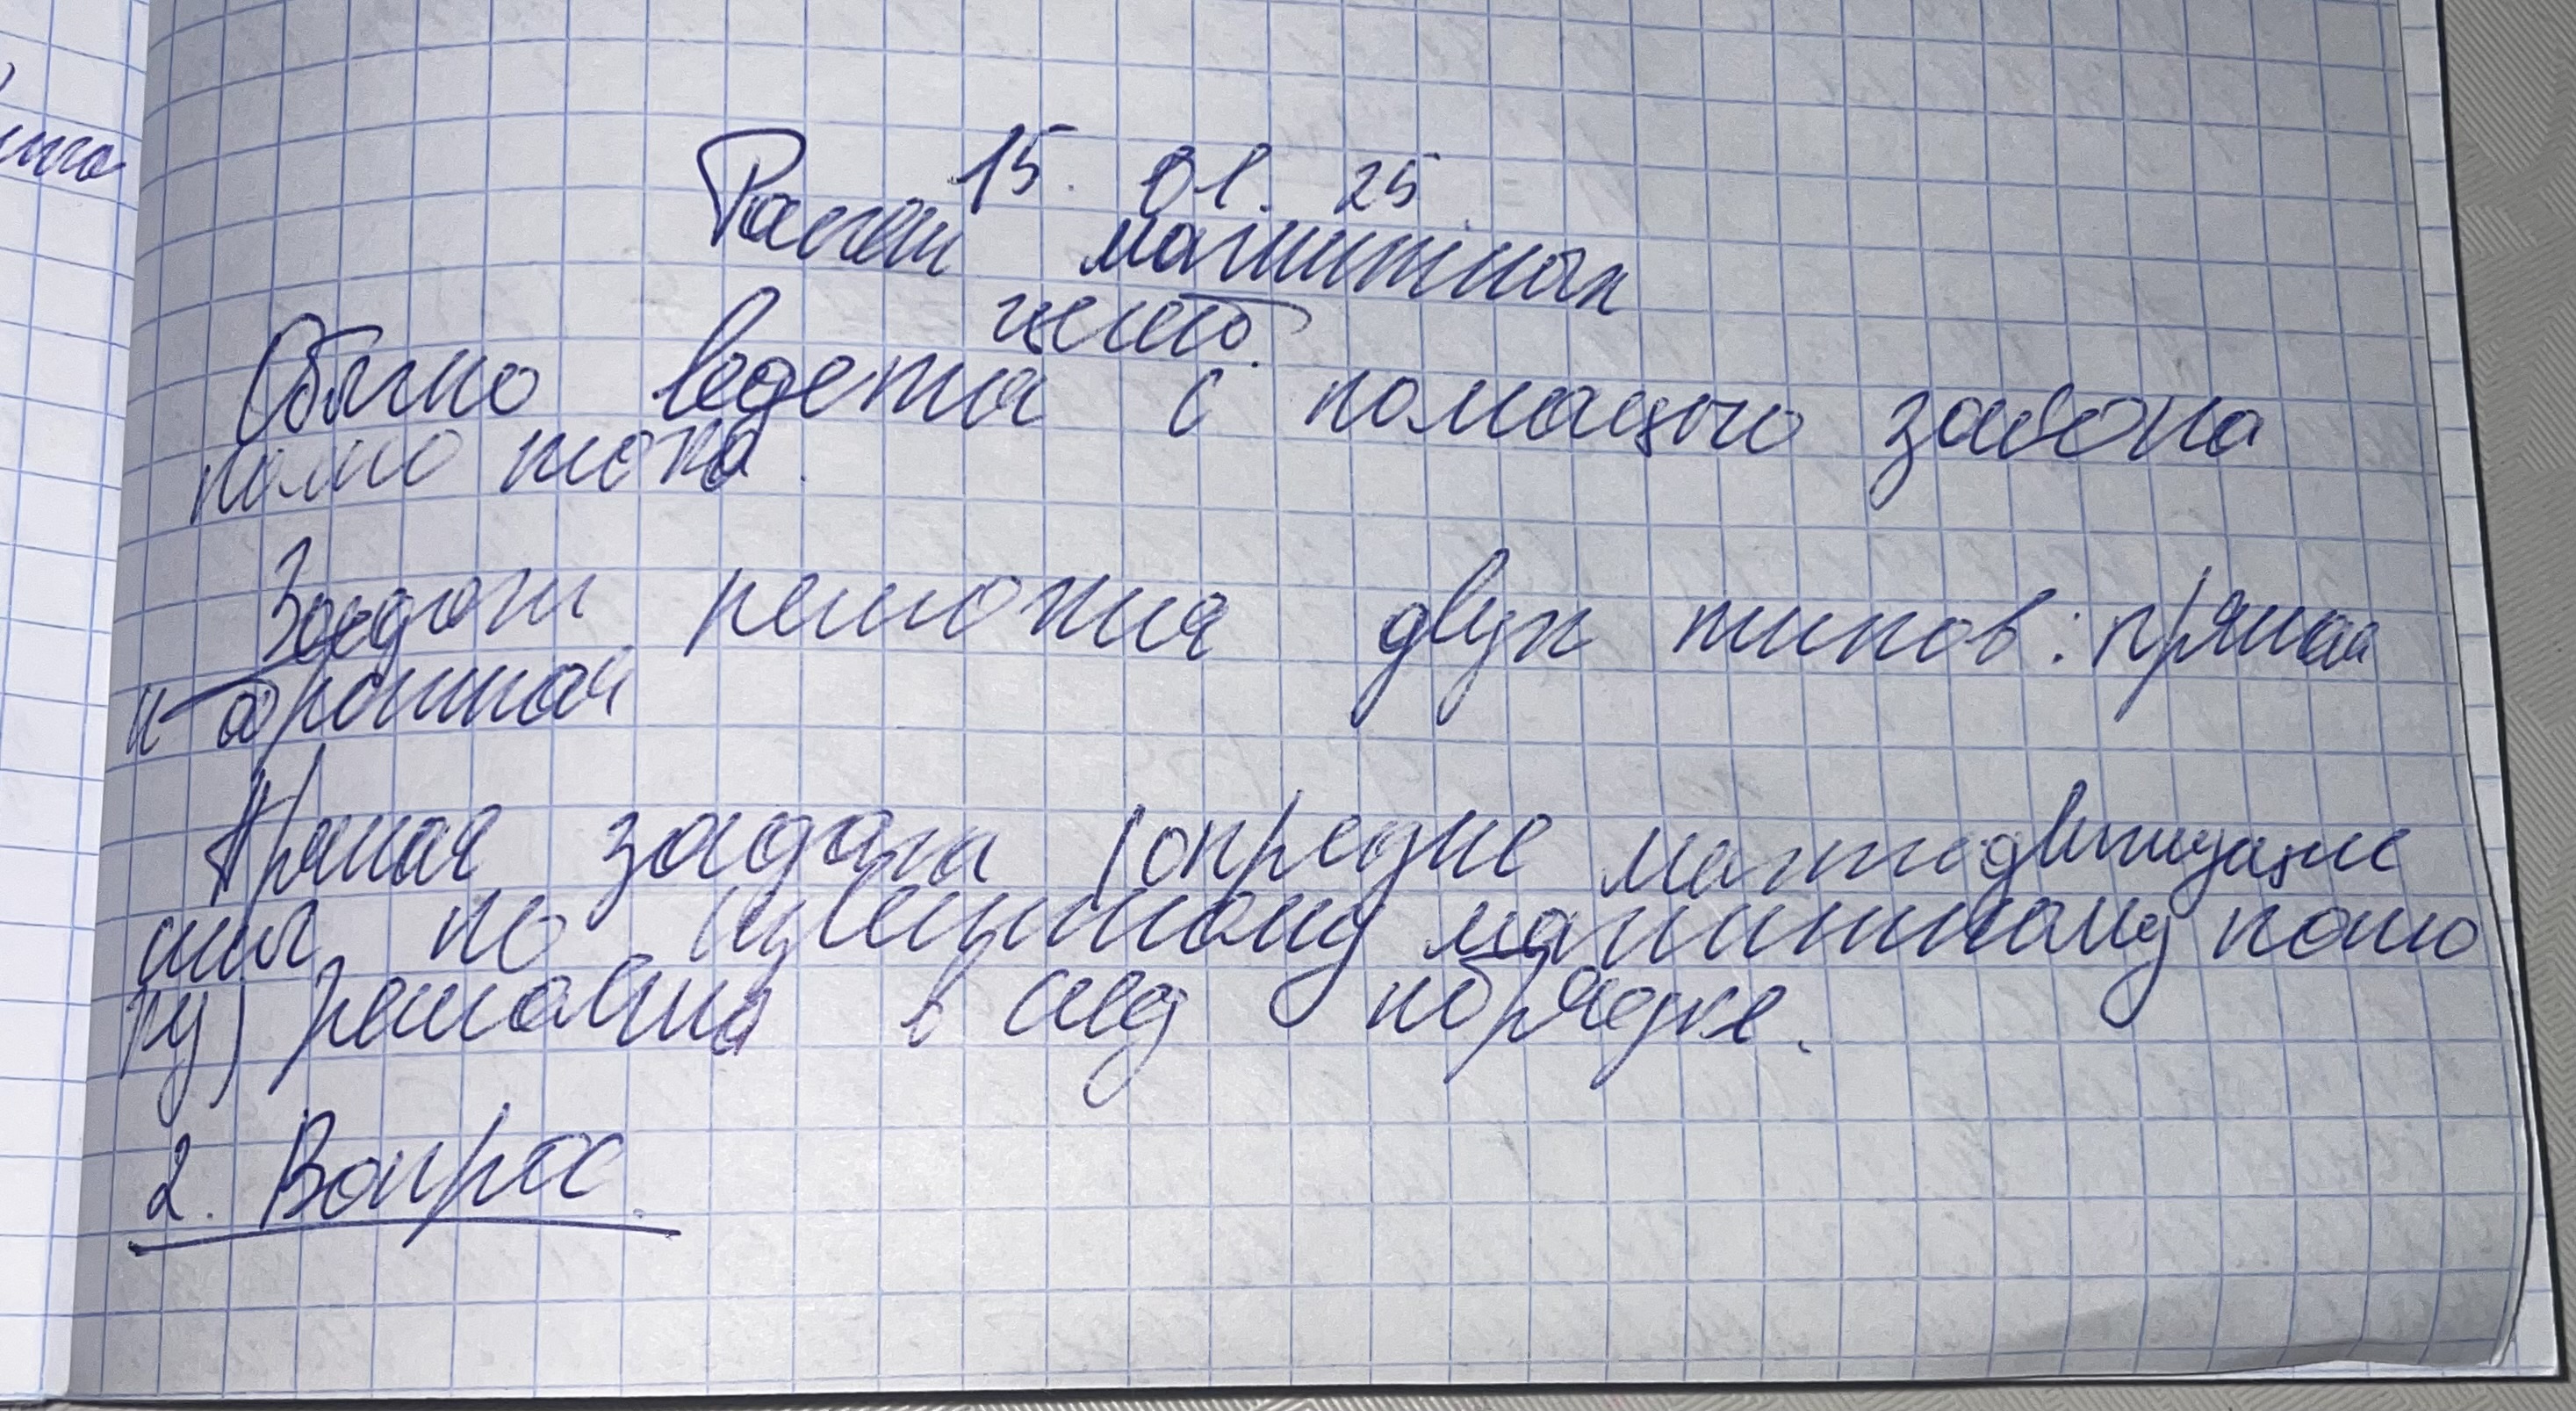 15. 01. 25
Расчет магнитных
цепей.
Обычно ведется с помощью закона
полно тока.
Задачи решаются двух типов: прямая
и обратная
Прямая задача (опреде магнитодвижущие
силы по известному магнитному пото
ку) решаются в след порядке.
2. Вопрос.